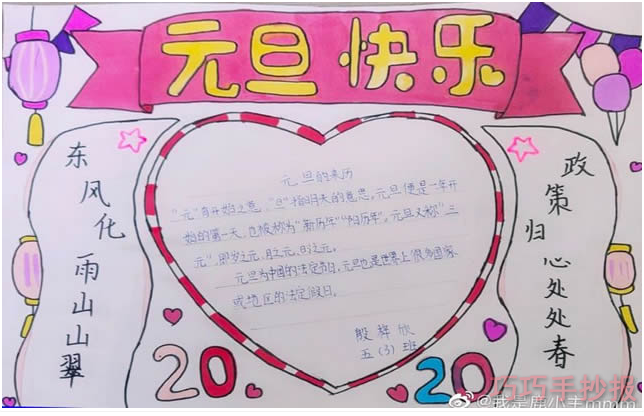 元旦快乐
东风化雨山山翠
政策归心处处春
元旦的来历
"元"有开始之意,"旦"指明天的意思。元旦便是一年开
始的第一天,也被称为"新历年""阳历年"。元旦又称"三
元",即岁之元、月之元、时之元。
元旦为中国的法定节日,元旦也是世界上很多国家
或地区的法定假日。
殷梓欣
五(3)班
2020
巧巧手抄报
@我是鹿小羊mmm